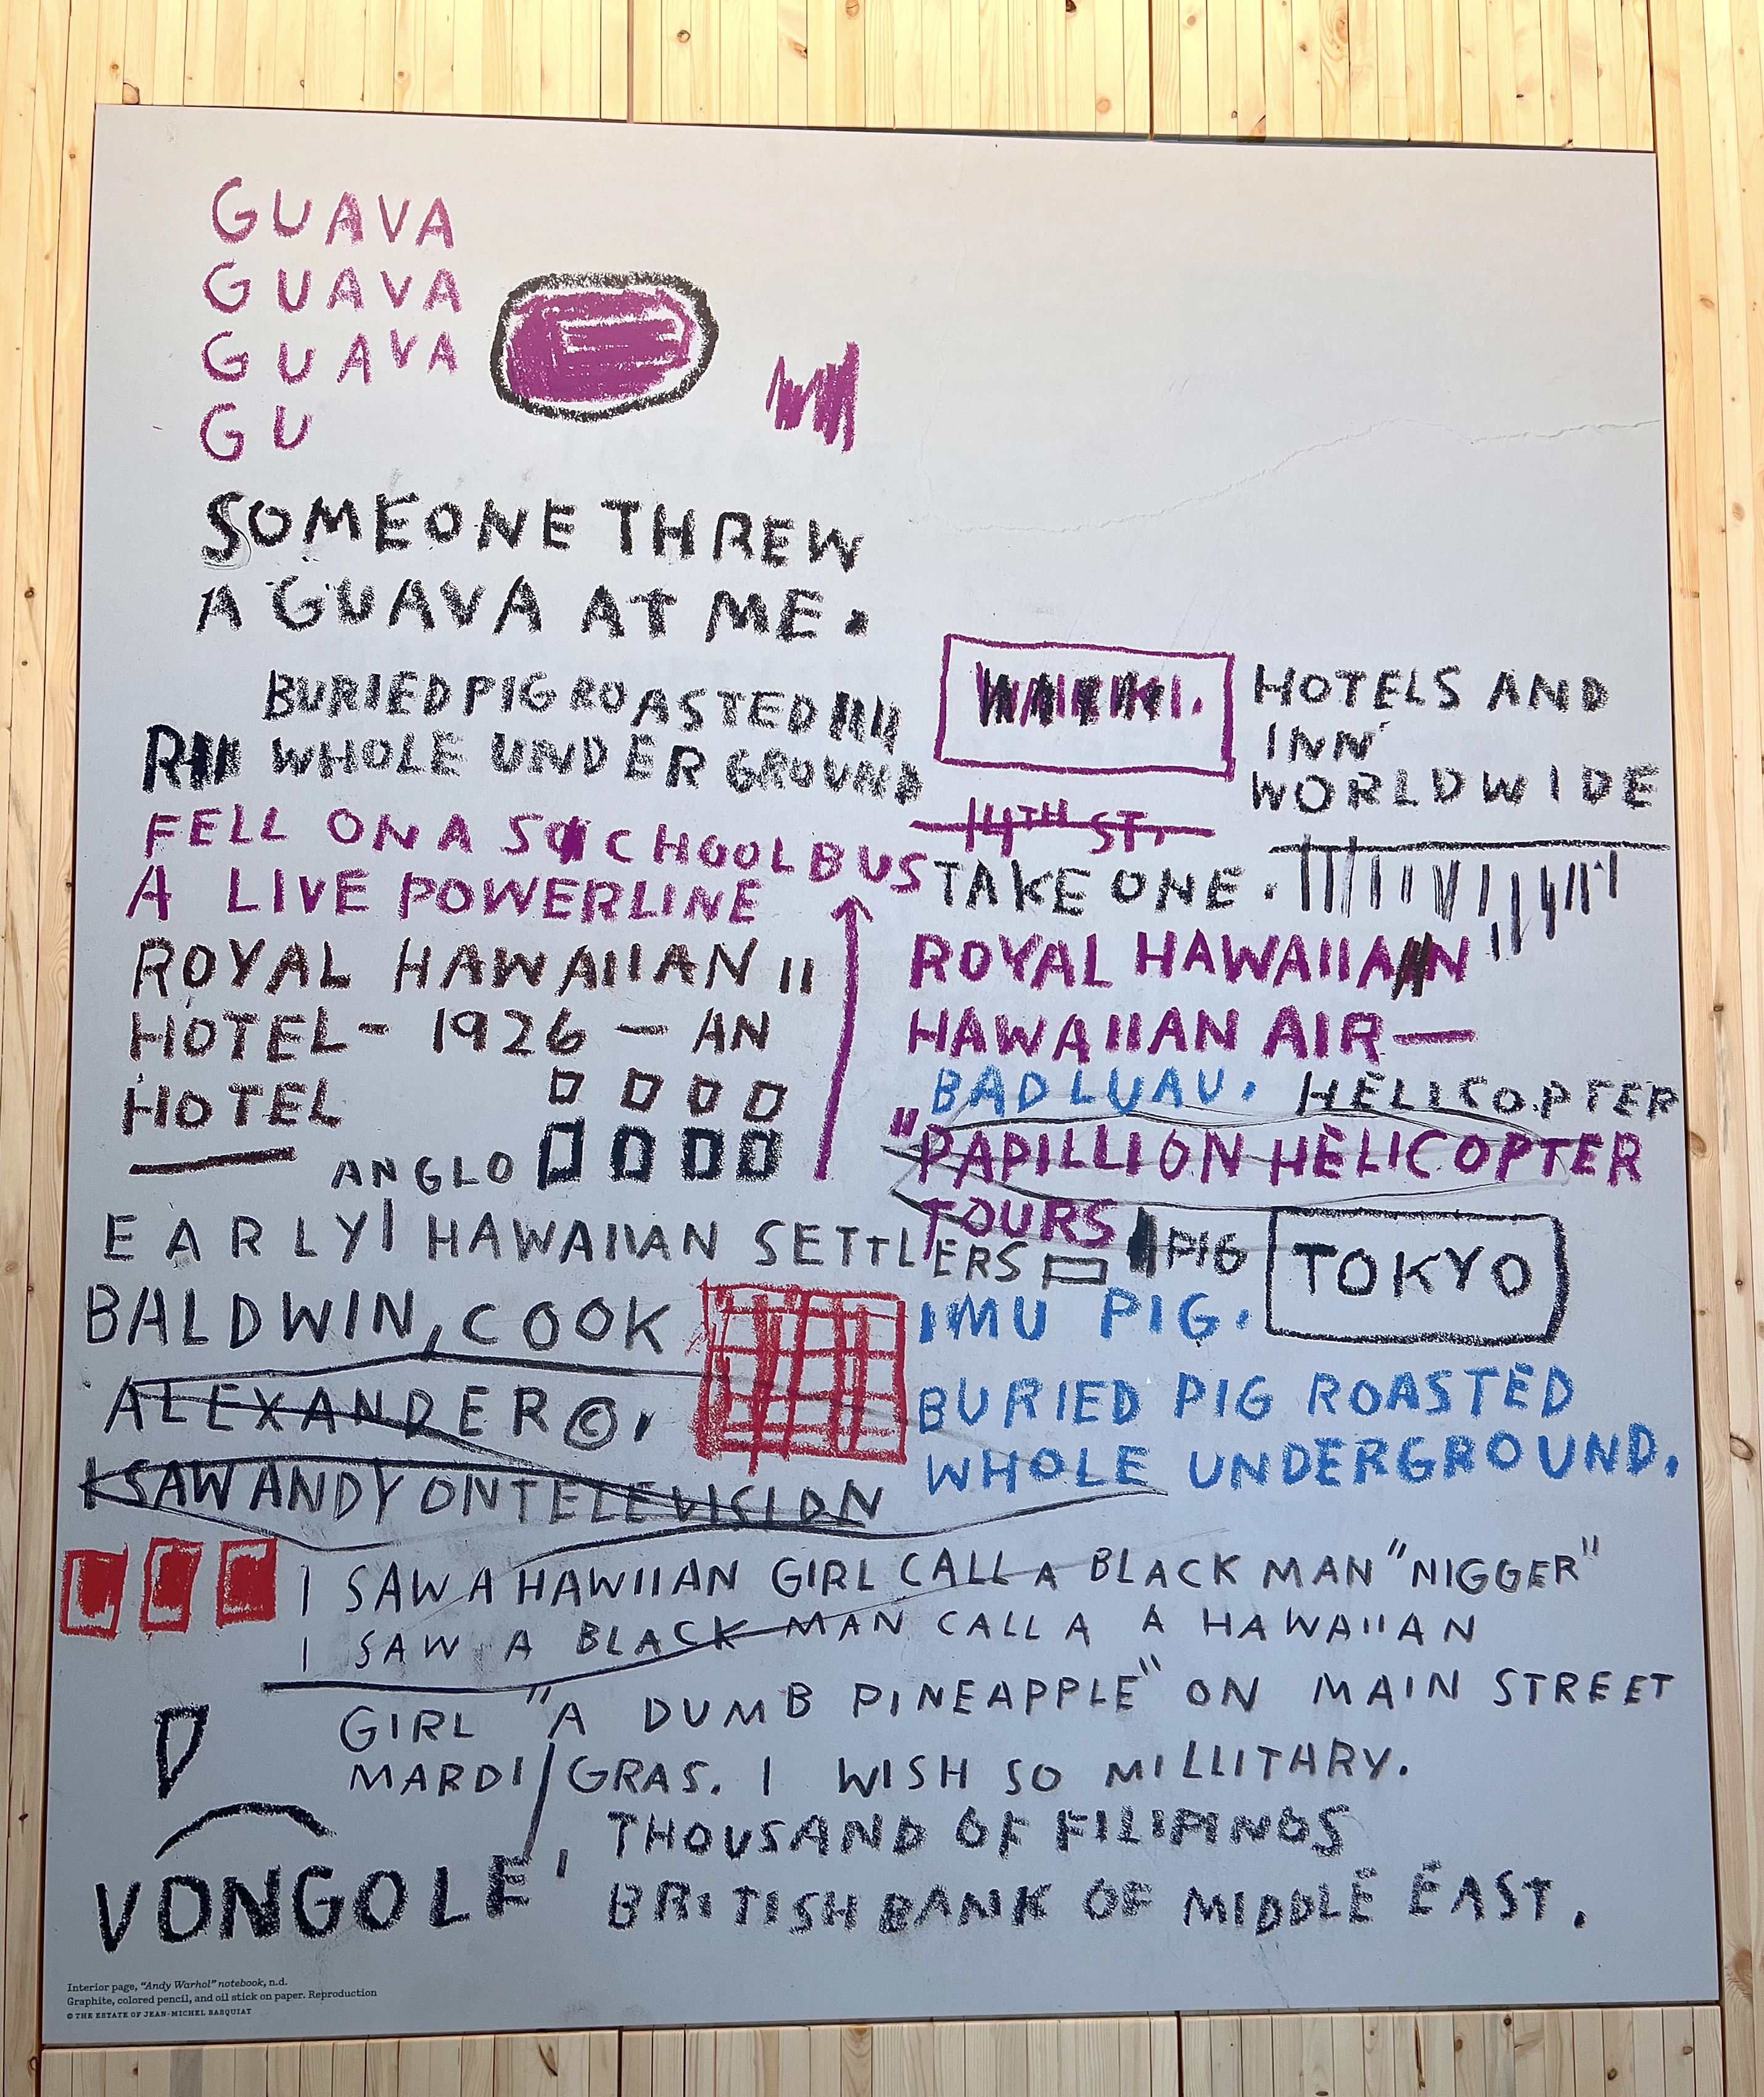 GUAVA
GUAVA
GUAVA
GU
SOMEONE THREW
A GUAVA AT ME.
BURIED PIG ROASTED
WHOLE UNDERGROUND
FELL ON A SCHOOL BUS
A LIVE POWERLINE
ROYAL HAWAIIAN II
HOTEL - 1926 - AN
HOTEL
ANGLO
WAIKIKI.
HOTELS AND
INN
WORLDWIDE
14TH ST.
TAKE ONE.
ROYAL HAWAIIAN
HAWAIIAN AIR—
BAD LUAU. HELICOPTER
"PAPILLION HELICOPTER
TOURS
PIG
TOKYO
EARLY HAWAIIAN SETTLERS
BALDWIN, COOK
ALEXANDER ©,
I SAW ANDY ON TELEVISION
IMU PIG.
BURIED PIG ROASTED
WHOLE UNDERGROUND.
I SAW A HAWIIAN GIRL CALL A BLACK MAN "NIGGER"
I SAW A BLACK MAN CALL A A HAWAIIAN
GIRL "A DUMB PINEAPPLE" ON MAIN STREET
MARDI GRAS. I WISH SO MILLITHRY.
THOUSAND OF FILIPINOS
VONGOLE' BRITISH BANK OF MIDDLE EAST.
Interior page, "Andy Warhol" notebook, n.d.
Graphite, colored pencil, and oil stick on paper. Reproduction
© THE ESTATE OF JEAN-MICHEL BASQUIAT